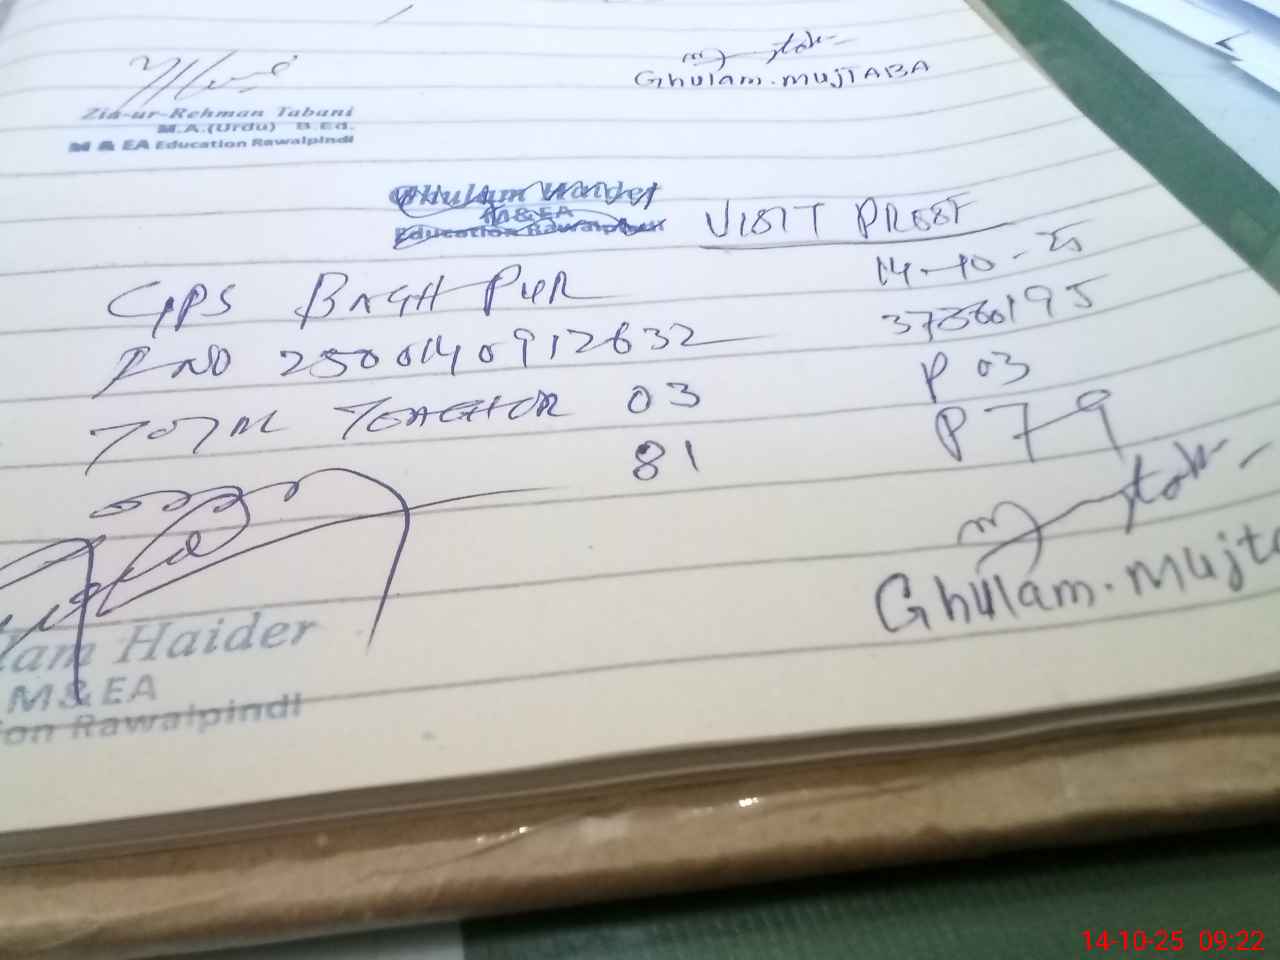 Ghulam. MUJTABA
Zia-ur-Rehman Tabani
M.A.(Urdu) B.Ed.
M & EA Education Rawalpindi
Ghulam Haider
M&EA
Education Rawalpindi
VISIT PROOF
GPS BAGH PUR 14-10-25
TOTAL TEACHER 03 P 03
81 P 79
Ghulam. Mujta
lam Haider
M&EA
on Rawalpindi
14-10-25 09:22